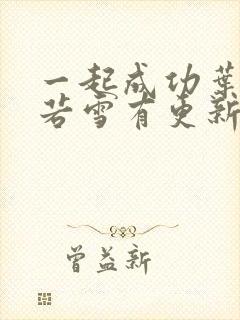 一起成功葉
若雪有更新
曾益新